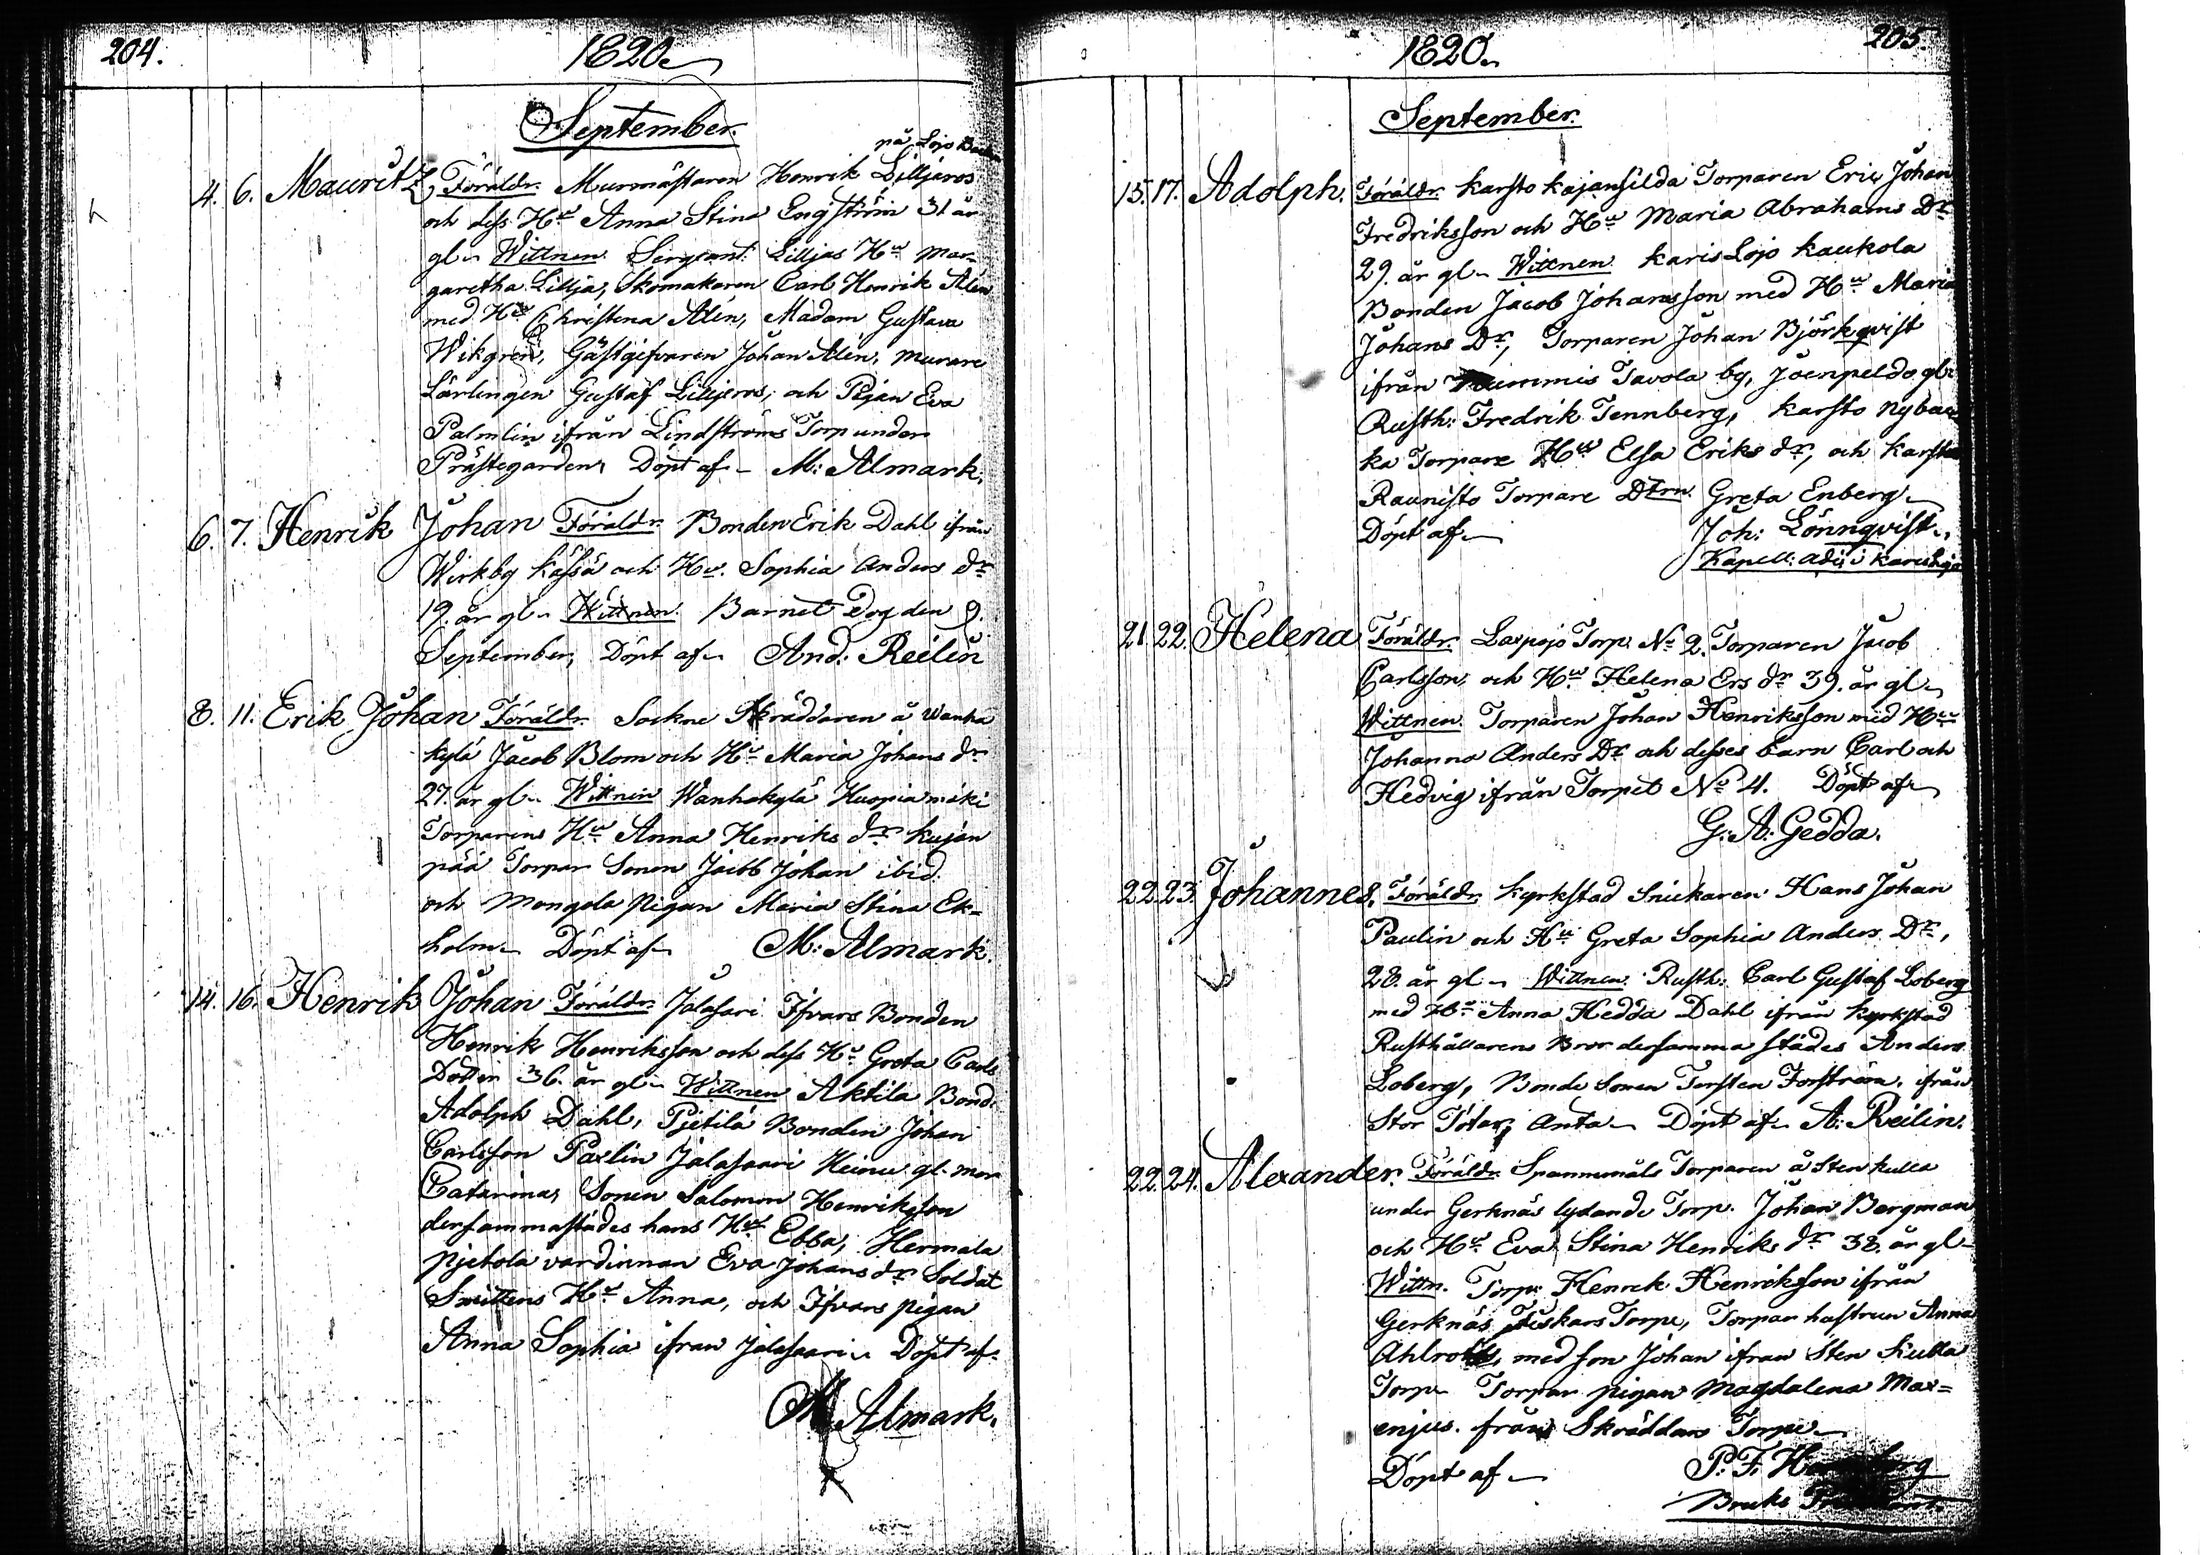 204.
1820.
September.
på Lojo Backa
4. 6. Mauritz, Föräldr. Murmästaren Henrik Lilljäros
och dess Hu Anna Stina Engström 31 år
gl. Wittnen. Sergeant Lilljas Hu Mar-
garetha Lillja, Skomakaren Carl Henrik Alén
med Hu Christina Alén, Madam Gustava
Wikgren, Gästgifvaren Johan Alén, murare
Lärlingen Gustaf Liljeros, och Pigan Eva
Palmlin ifrån Lindströms Torp under
Prästegården, Döpt af M: Almark.
6. 7. Henrik Johan Föräldr. Bonden Erik Dahl ifrån
Wirkby Kässä och Hu. Sophia Anders dr
19. år gl. Wittnen. Barnet dog den 9.
September, Döpt af And: Reilin
8. 11. Erik Johan Föräldr. Sockne Skräddaren å Wanha
kylä Jacob Blom och Hu Maria Johans dr
27. år gl. Wittnen Wanhakylä Kuopiamäki
Torparens Hu Anna Henriks dr Kujan
pää Torpar Sonen Jacob Johan ibid.
och Mongola pigan Maria Stina Ek=
holm Döpt af M: Almark.
14. 16. Henrik Johan Föräldr. Jalassari Ifvars Bonden
Henrik Henriksson och dess Hu Greta Carls
Dotter 36. år gl. Wittnen Aktila Bond.
Adolph Dahl, Pjetilä Bonden Johan
Carlsson Paxlin Jalassaari Heinu gl. mor
Catarina, Sonen Salomon Henriksson
dersammastädes hans Hu Ebba, Hermala
Pjetola värdinnan Eva Johans dr Soldat
Smittens Hu Anna, och Ifvars pigan
Anna Sophia ifrån Jalassaari Döpt af
M Almark.
205.
1820.
September.
15. 17. Adolph. Föräldr. Karsto Kajansilda Torparen Eric Johan
Fredriksson och Hu Maria Abrahams Dr
29. år gl. Wittnen Karislojo Kaukola
Bonden Jacob Johansson med Hu Maria
Johans Dr, Torparen Johan Björkqvist
ifrån Nummis Tavola by, Joenpeldo gl.
Rusth: Fredrik Tennberg, Karsto Nybac
ka Torpare Hu Elsa Eriks dr, och Karsto
Raunisto Torpare Dtrn Greta Enberg
Döpt af Joh: Lönnqvist.
Kapell: adj: i Karislojo
21. 22. Helena Föräldr. Laxpojo Torp. No 2. Torparen Jacob
Carlsson, och Hu Helena Ers dr 39. år gl.
Wittnen. Torparen Johan Henriksson med Hu
Johanna Anders Dr och desses barn Carl och
Hedvig ifrån Torpet No 4. Döpt af
G: A: Gedda.
22. 23. Johannes. Föräldr. Kyrkstad Snickaren Hans Johan
Paulin och Hu Greta Sophia Anders Dr,
28. år gl. Wittnen. Rusth: Carl Gustaf Loberg
med Hu Anna Hedda Dahl ifrån Kyrkstad
Rusthållarens Bror dersamma städes Anders
Loberg, Bonde Sonen Torsten Forström. ifrån
Stor Tötar, Anta Döpt af A: Reilin.
22. 24. Alexander. Föräldr. Spannemåls Torparen å Stenkulla
under Gerknäs lydande Torp. Johan Bergman
och Hu Eva Stina Henriks dr 38. år gl.
Wittn. Torp: Henrik Henriksson ifrån
Gerknäs Fiskars Torpe, Torpar hustrun Anna
med son Johan ifrån Sten Kulla
Torp Torpar pigan Magdalena Max=
enjus. från Skräddars Torpe
Döpt af P: F.
Bruks